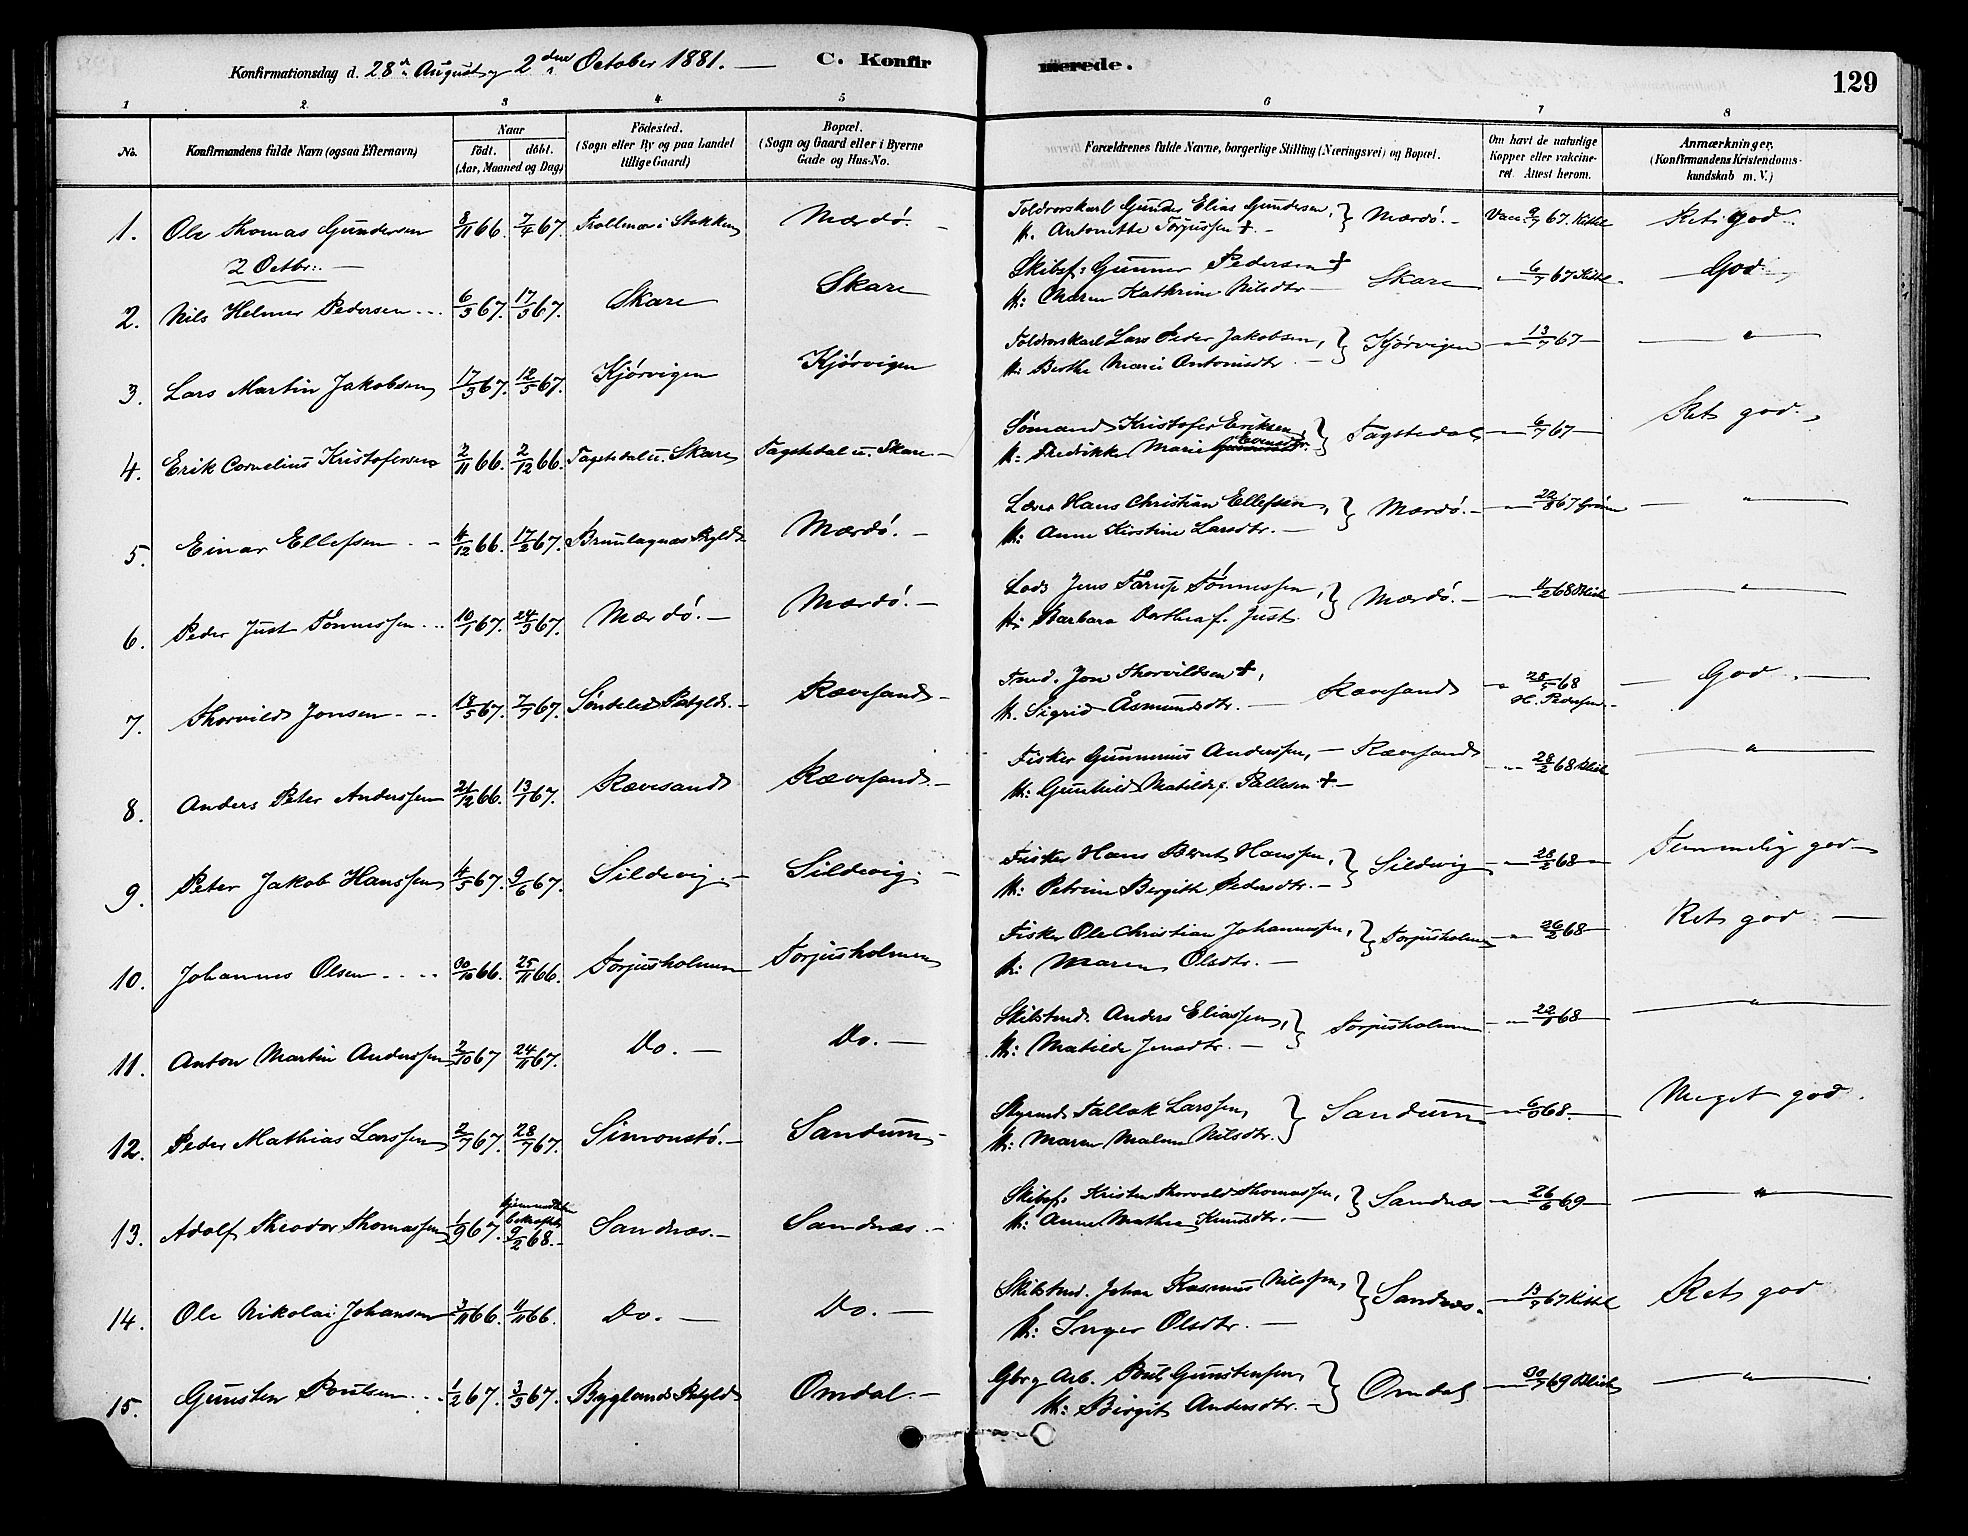 Konfirmationsdag d. 28de August og 2den October 1881. — C. Konfirmerede. 129
1 2 3 4 5 6 7 8
No. Konfirmandens fulde Navn (ogsaa Efternavn) Naar født. døbt. (Aar, Maaned og Dag) Fødested. (Sogn eller By og paa Landet tillige Gaard) Bopæl. (Sogn og Gaard eller i Byerne Gade og Hus-No. Forældrenes fulde Navne, borgerlige Stilling (Næringsvei) og Bopæl. Om havt de naturlige Kopper eller vakcineret. Attest herom. Anmærkninger, (Konfirmandens Kristendomskundskab m. V.)
1. Ole Thomas Gundersen 8/11 66. 7/4 67. i Stokken Mærdö. — Toldrorskarl Gunder Elias Gundersen, Mærdö. — Vacc. 9/7 67. Kittel Ret god.
H. Antonette Torjussen +. —
2 Octbr. —
2. Nils Helmer Pedersen 6/3 67. 17/3 67. Skare Skare Skibsf: Gunner Pedersen + Skare — " 6/7 67 Kittel. God
H: Maren Kathrine Nilsdtr —
3. Lars Martin Jakobsen 17/3 67. 12/5 67. Kjörvigen Kjörvigen Toldrorskarl Lars Peder Jakobsen, Kjörvigen — " 13/7 67 — "
H: Berthe Marie Antonisdtr. —
4. Erik Cornelius Kristofersen 2/11 66. 2/12 66. Tagstedal u. Skare Tagstedal u. Skare. — Sömand Kristofer Eriksen, Tagstedal — " 6/7 67 — Ret god.
H: Fredrikke Marie Evensdtr.
5. Einar Ellefsen 4/12 66. 17/2 67. Brunlagnæs Prgld. Mærdö. — Lærer Hans Christian Ellefsen, Mærdö. — " 22/8 67 "
H: Anne Kirstine Larsdtr. —
6. Peder Just Tönnessen 10/1 67. 24/3 67. Mærdö. — Mærdö. — Lods Jens Tårup Tönnessen, Mærdö. — " 11/2 68 Blich "
H: Barbara Dorthea f. Just
7. Thorvild Jonsen 18/5 67. 7/7 67. Söndeled Prstgld. — Rævesand — Tmd. Jon Thorvildsen +, Rævesand " 28/5 68 H. Pedersen — God. —
H. Sigrid Åsmundsdtr. —
8. Anders Peter Anderssen 21/12 66. 13/1 67. Rævesand Rævesand — Fisker Gunnerius Anderssen, — Rævesand " 28/2 68 Blich "
H: Gunhild Matilde f. Pallesen + —
9. Peter Jakob Hanssen 4/5 67. 9/6 67. Sildevig. — Sildevig. — Fisker Hans Bernt Hanssen, Sildevig — " 28/2 68 — Temmelig god —
H: Petrine Bergith Pedersdtr. —
10. Johannes Olsen 30/10 66. 25/11 66. Torjusholmen Torjusholmen Fisker Ole Christian Johannessen, Torjusholmen — " 26/2 68 — Ret god —
H: Maren Olsdtr. —
11. Anton Martin Anderssen 2/10 67 24/11 67. Do. — Do. — Skibstmd. Anders Eliassen, Torjusholmen — " 22/1 68 — "
H: Matilde Jensdtr. —
12. Peder Mathias Larssen 2/7 67. 28/7 67. Simonstö. — Sandum — Styrmd. Tallak Larssen, Sandum — " 6/5 68. — Meget god.
H: Maren Malene Nilsdtr.
13. Adolf Theodor Thomassen 1/9 67. hjemmedøbt bekræftet 9/2 68. — Sandnæs. — Sandnæs. — Skibsf: Kristen Thorvald Thomassen, Sandnæs — " 26/6 69 — "
H: Anne Mathea Knudsdtr. —
14. Ole Nikolai Johansen 3/11 66. 11/11 66. Do. — Do. — Skibstmd. Johan Rasmus Nilssen, Sandnæs. — " 13/7 67 Kittel Ret god
H: Inger Olsdtr. —
15. Gunsten Poulsen 1/2 67. 3/3 67. Bygland Prstgld Omdal. — Gbrg Arb. Poul Gunstensen, Omdal — " 30/7 69 Blich "
H: Birgit Andersdtr. —